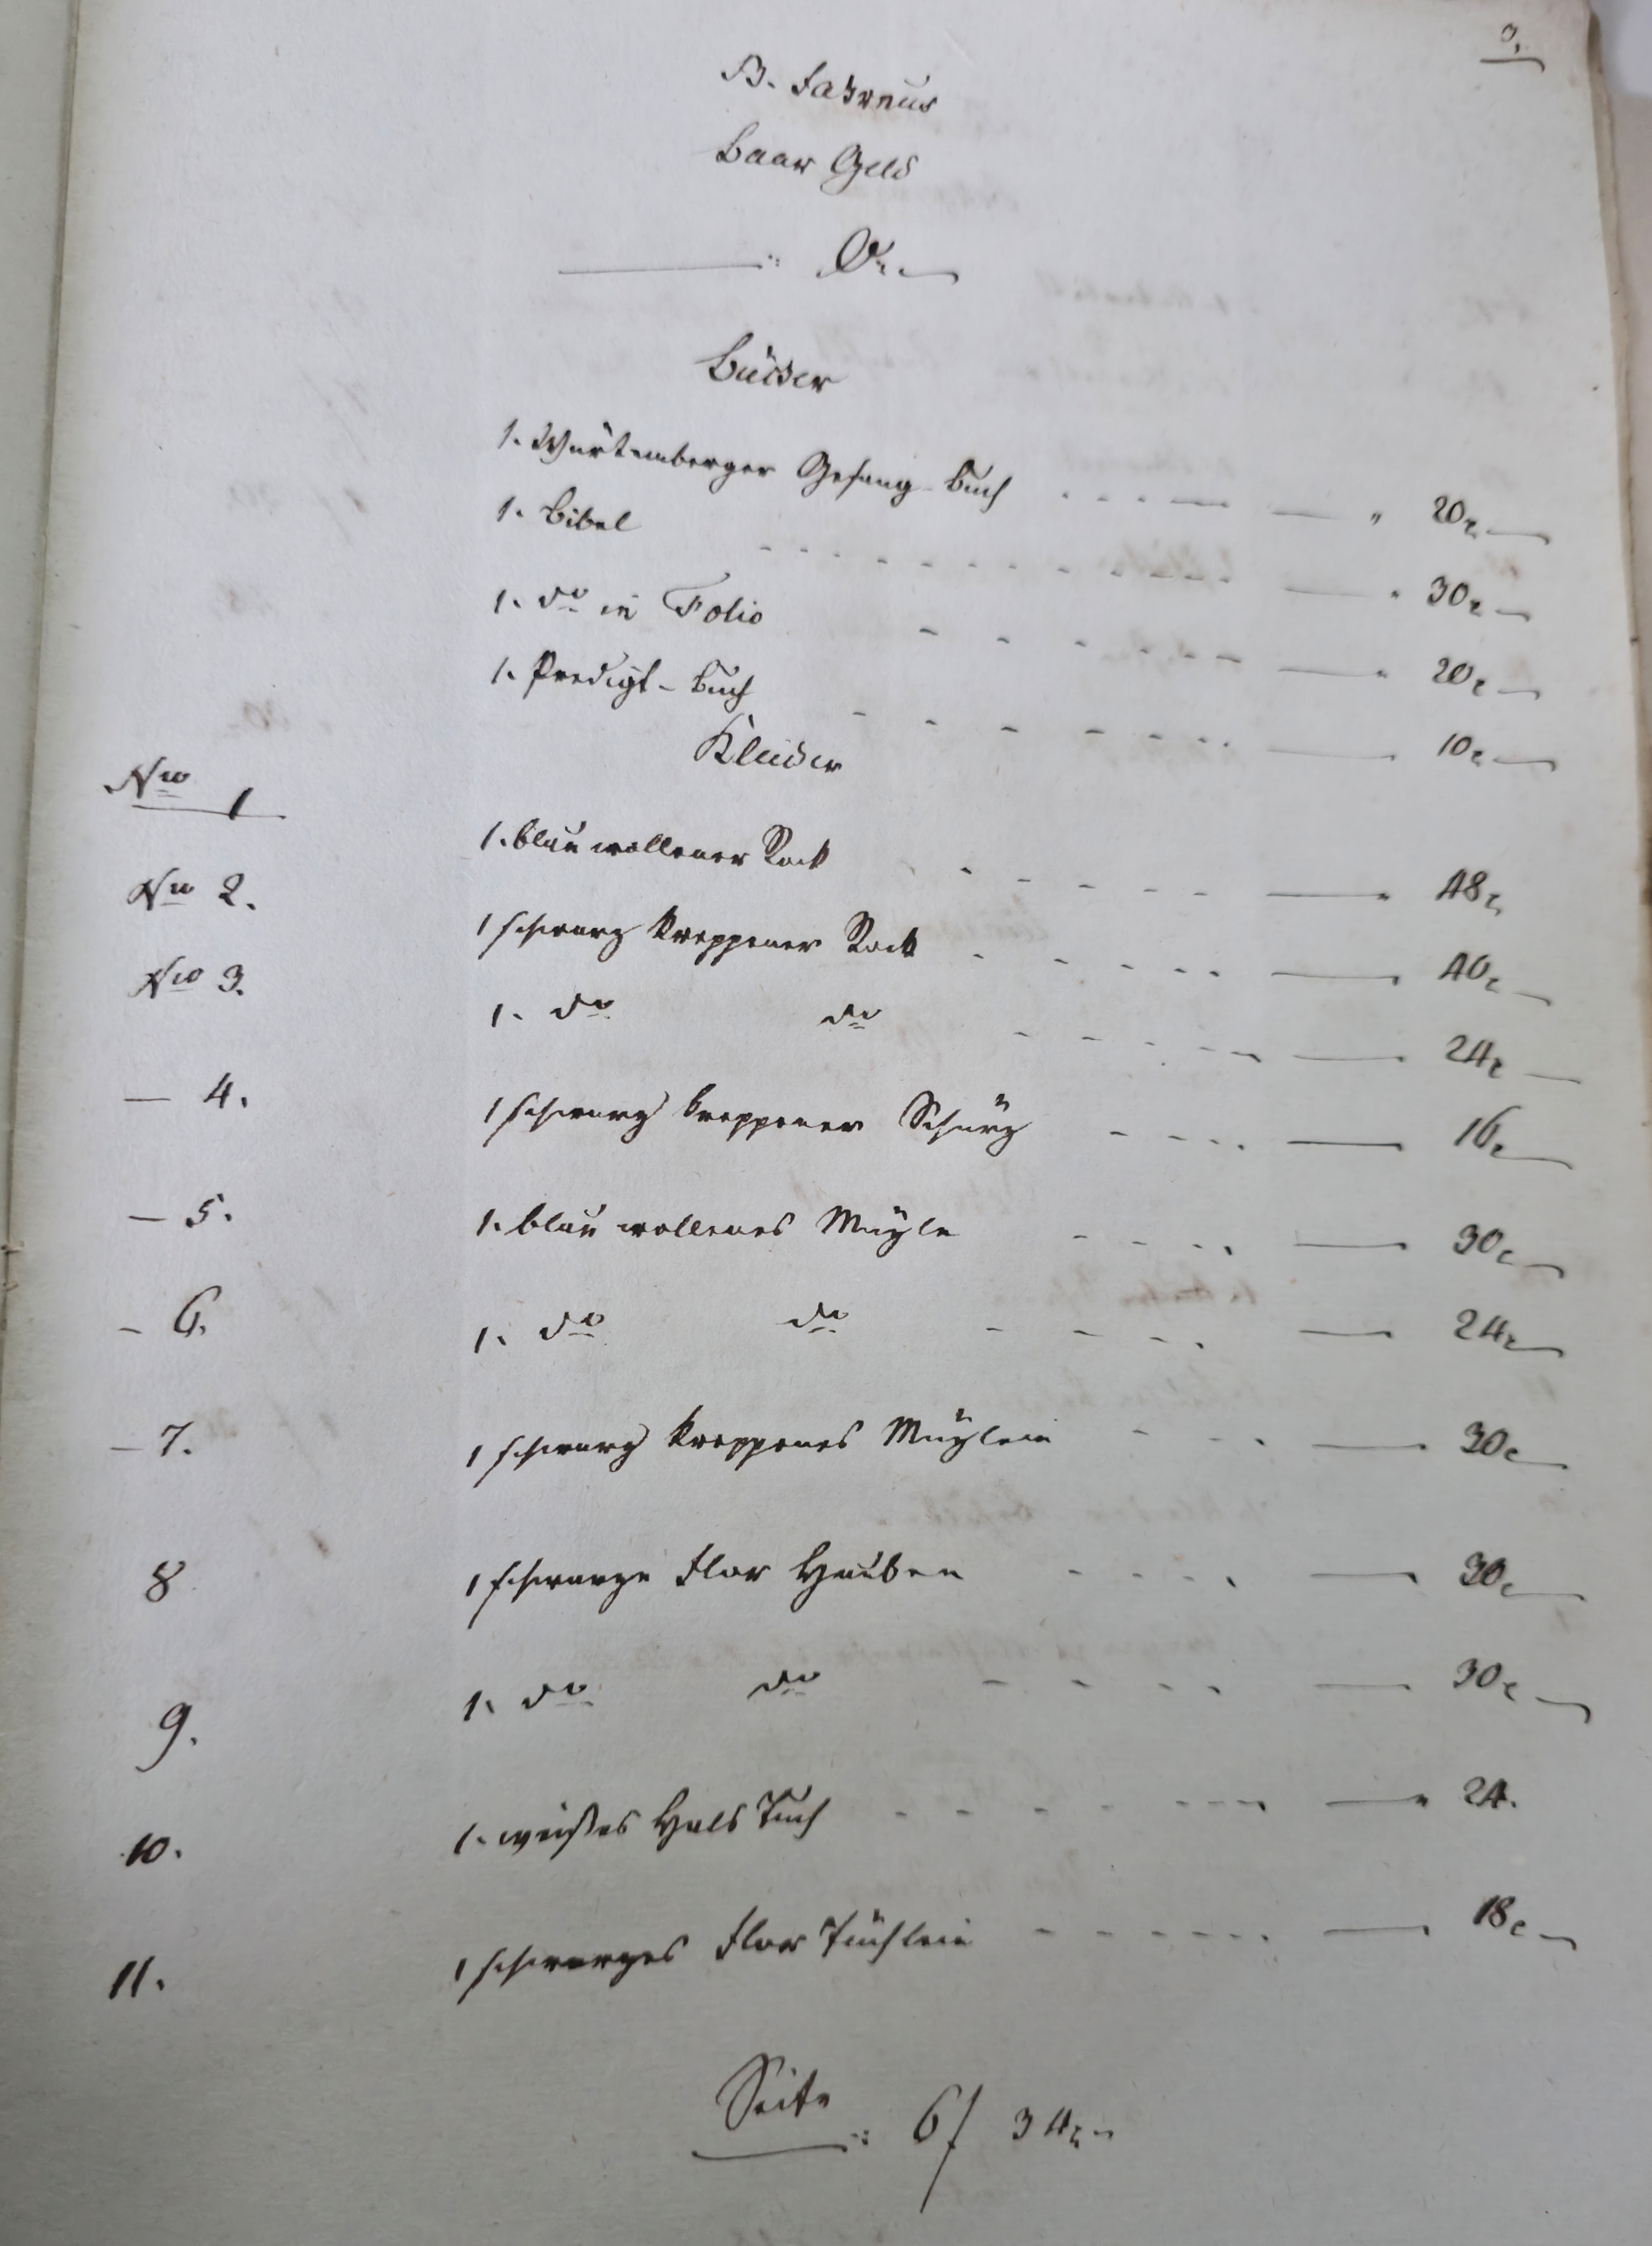 B. Fahrnus
Baar Geld
0.
Bücher
1. Würtemberger Gesang-Buch " 20x
1. Bibel " 30x
1. do in Folio " 20x
1. Predigt-Buch 10x
Kleider
No 1 1. blau wollener Rock " 48x
No 2. 1 schwarz kreppener Rock 40x
No 3. 1. do do 24x
— 4. 1 schwarz kreppener Schurz 16x
— 5. 1. blau wollenes Müzle 30x
— 6. 1. do do 24x
— 7. 1 schwarz kreppenes Müzlein 30x
8 1 schwarze Flor Hauben 30x
9. 1. do do 30x
10. 1. weißes Hals Tuch " 24.
11. 1 schwarzes Flor Tüchlein 18x
Seite : 6 f 34x